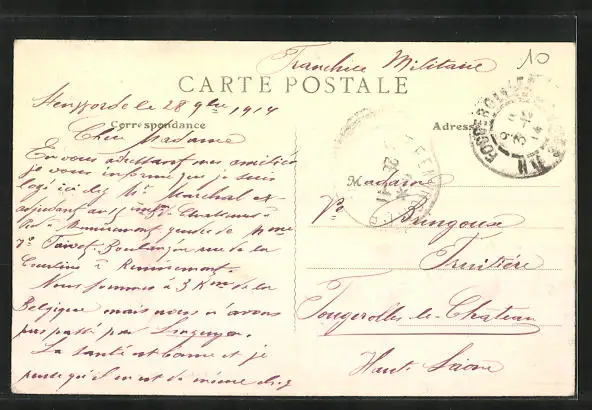 10
Franchise Militaire
CARTE POSTALE
Steenvoorde le 28 9bre 1914
Correspondance
Adresse
Chère Madame
En vous adressant mes amitiés
je vous informe que je suis
logé ici chez Mr Maréchal ex-
adjudant aux Chasseurs à
Pied à Remiremont gendre de Mme
Vve Boulangère rue de la
Courtine à Remiremont.
Nous sommes à 3 Kms de la
Belgique mais nous n'avons
pas passé par
La santé est bonne et je
pense qu'il en est de même chez
Madame
Vve Bringouse
Fruitière
Fougerolles-le-Château
Haute Saône